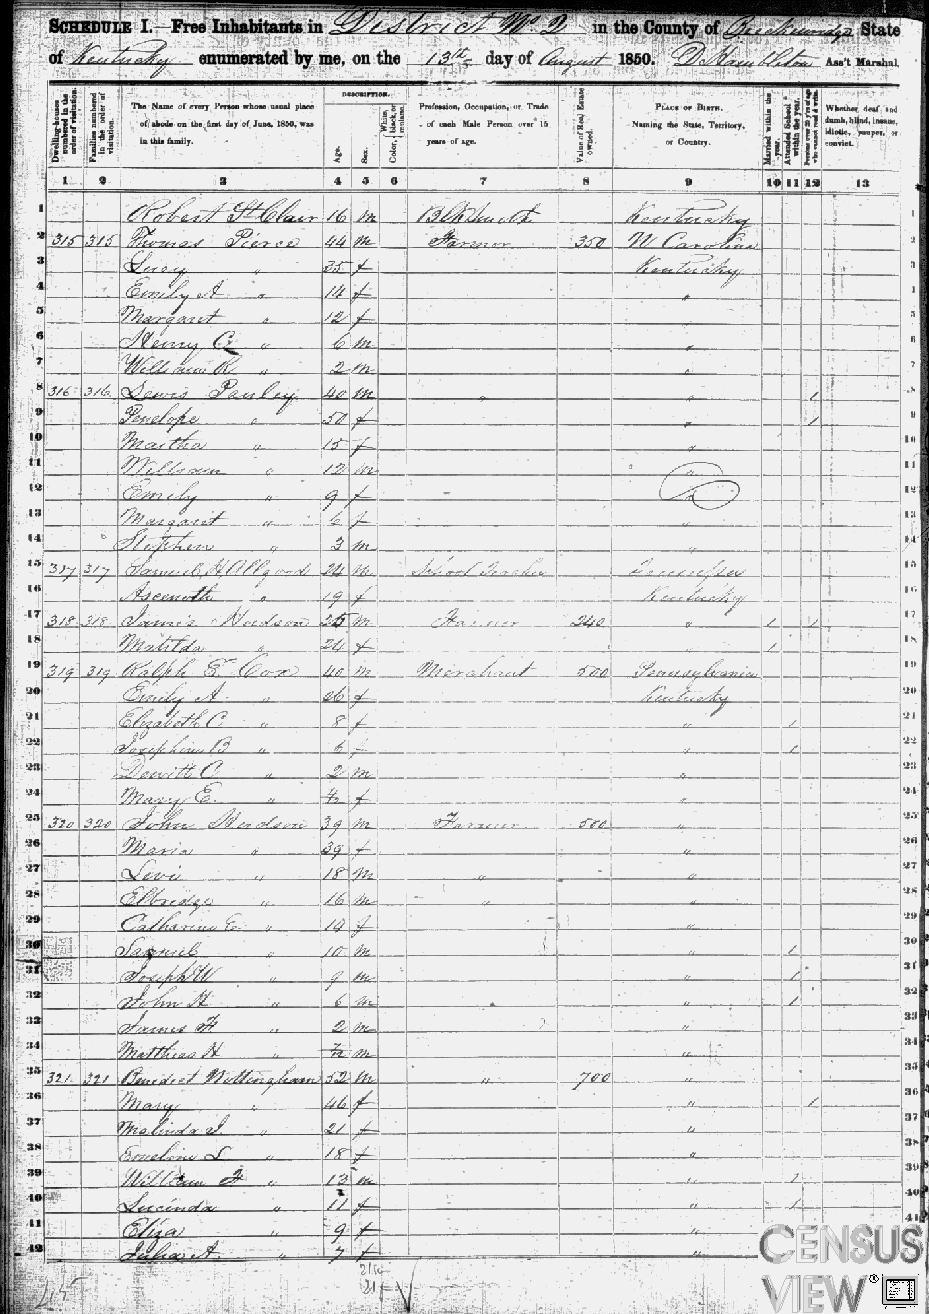 SCHEDULE I.—Free Inhabitants in District No. 2 in the County of Breckenridge State
of Kentucky enumerated by me, on the 13th day of August 1850. D. Hambleton Ass't Marshal.
Dwelling-houses numbered in the order of visitation.
Families numbered in the order of visitation.
The Name of every Person whose usual place of abode on the first day of June, 1850, was in this family.
DESCRIPTION.
Age.
Sex.
Color, White, black, or mulatto.
Profession, Occupation, or Trade of each Male Person over 15 years of age.
Value of Real Estate owned.
PLACE OF BIRTH. Naming the State, Territory, or Country.
Married within the year.
Attended School within the year.
Persons over 20 y'rs of age who cannot read & write.
Whether deaf and dumb, blind, insane, idiotic, pauper, or convict.
1 2 3 4 5 6 7 8 9 10 11 12 13
1 Robert St Clair 16 m Blk Smith Kentucky 1
2 315 315 Thomas Pierce 44 m Farmer 350 N Carolina 2
3 Lucy " 35 f Kentucky 3
4 Emily A " 14 f "
5 Margaret " 12 f 5
6 Henry C " 6 m " 6
7 William R " 2 m " 7
8 316 316 Lewis Pauley 40 m " " 1 8
9 Penelope " 50 f " 1 9
10 Martha " 15 f " 10
11 William " 12 m " 11
12 Emily " 9 f " 12
13 Margaret " 6 f " 13
14 Stephen " 3 m " 14
15 317 317 Samuel H Allgood 24 m School Teacher Tennessee 15
16 Asceneth " 19 f Kentucky 16
17 318 318 James Hudson 25 m Farmer 240 " 1 1 17
18 Matilda " 24 f " 1 18
19 319 319 Ralph E Cox 40 m Merchant 500 Pennsylvania 19
20 Emily A. " 26 f Kentucky 20
21 Elizabeth C " 8 f " 1 21
22 Josephine B " 6 f " 1 22
23 Dewitt C " 2 m " 23
24 Mary E. " f " 24
25 320 320 John Hudson 39 m Farmer 500 " 25
26 Maria " 39 f " 26
27 Levi " 18 m " " 27
28 Elbridge " 16 m " " 28
29 Catharine E " 14 f " 29
30 Samuel " 10 m " 1 30
31 Joseph W " 9 m " 1 31
32 John H " 6 m " 1 32
33 James F " 2 m " 33
34 Matthias H " m " 34
35 321 321 Benedict Nottingham 52 m " 700 " 35
36 Mary " 46 f " 1 36
37 Malinda J " 21 f " 37
38 Emeline S " 18 f " 38
39 William F " 13 m " 1 39
40 Lucinda " 11 f " 1 40
41 Eliza " 9 f " 41
42 Julia A. " 7 f "
CENSUS
VIEW®